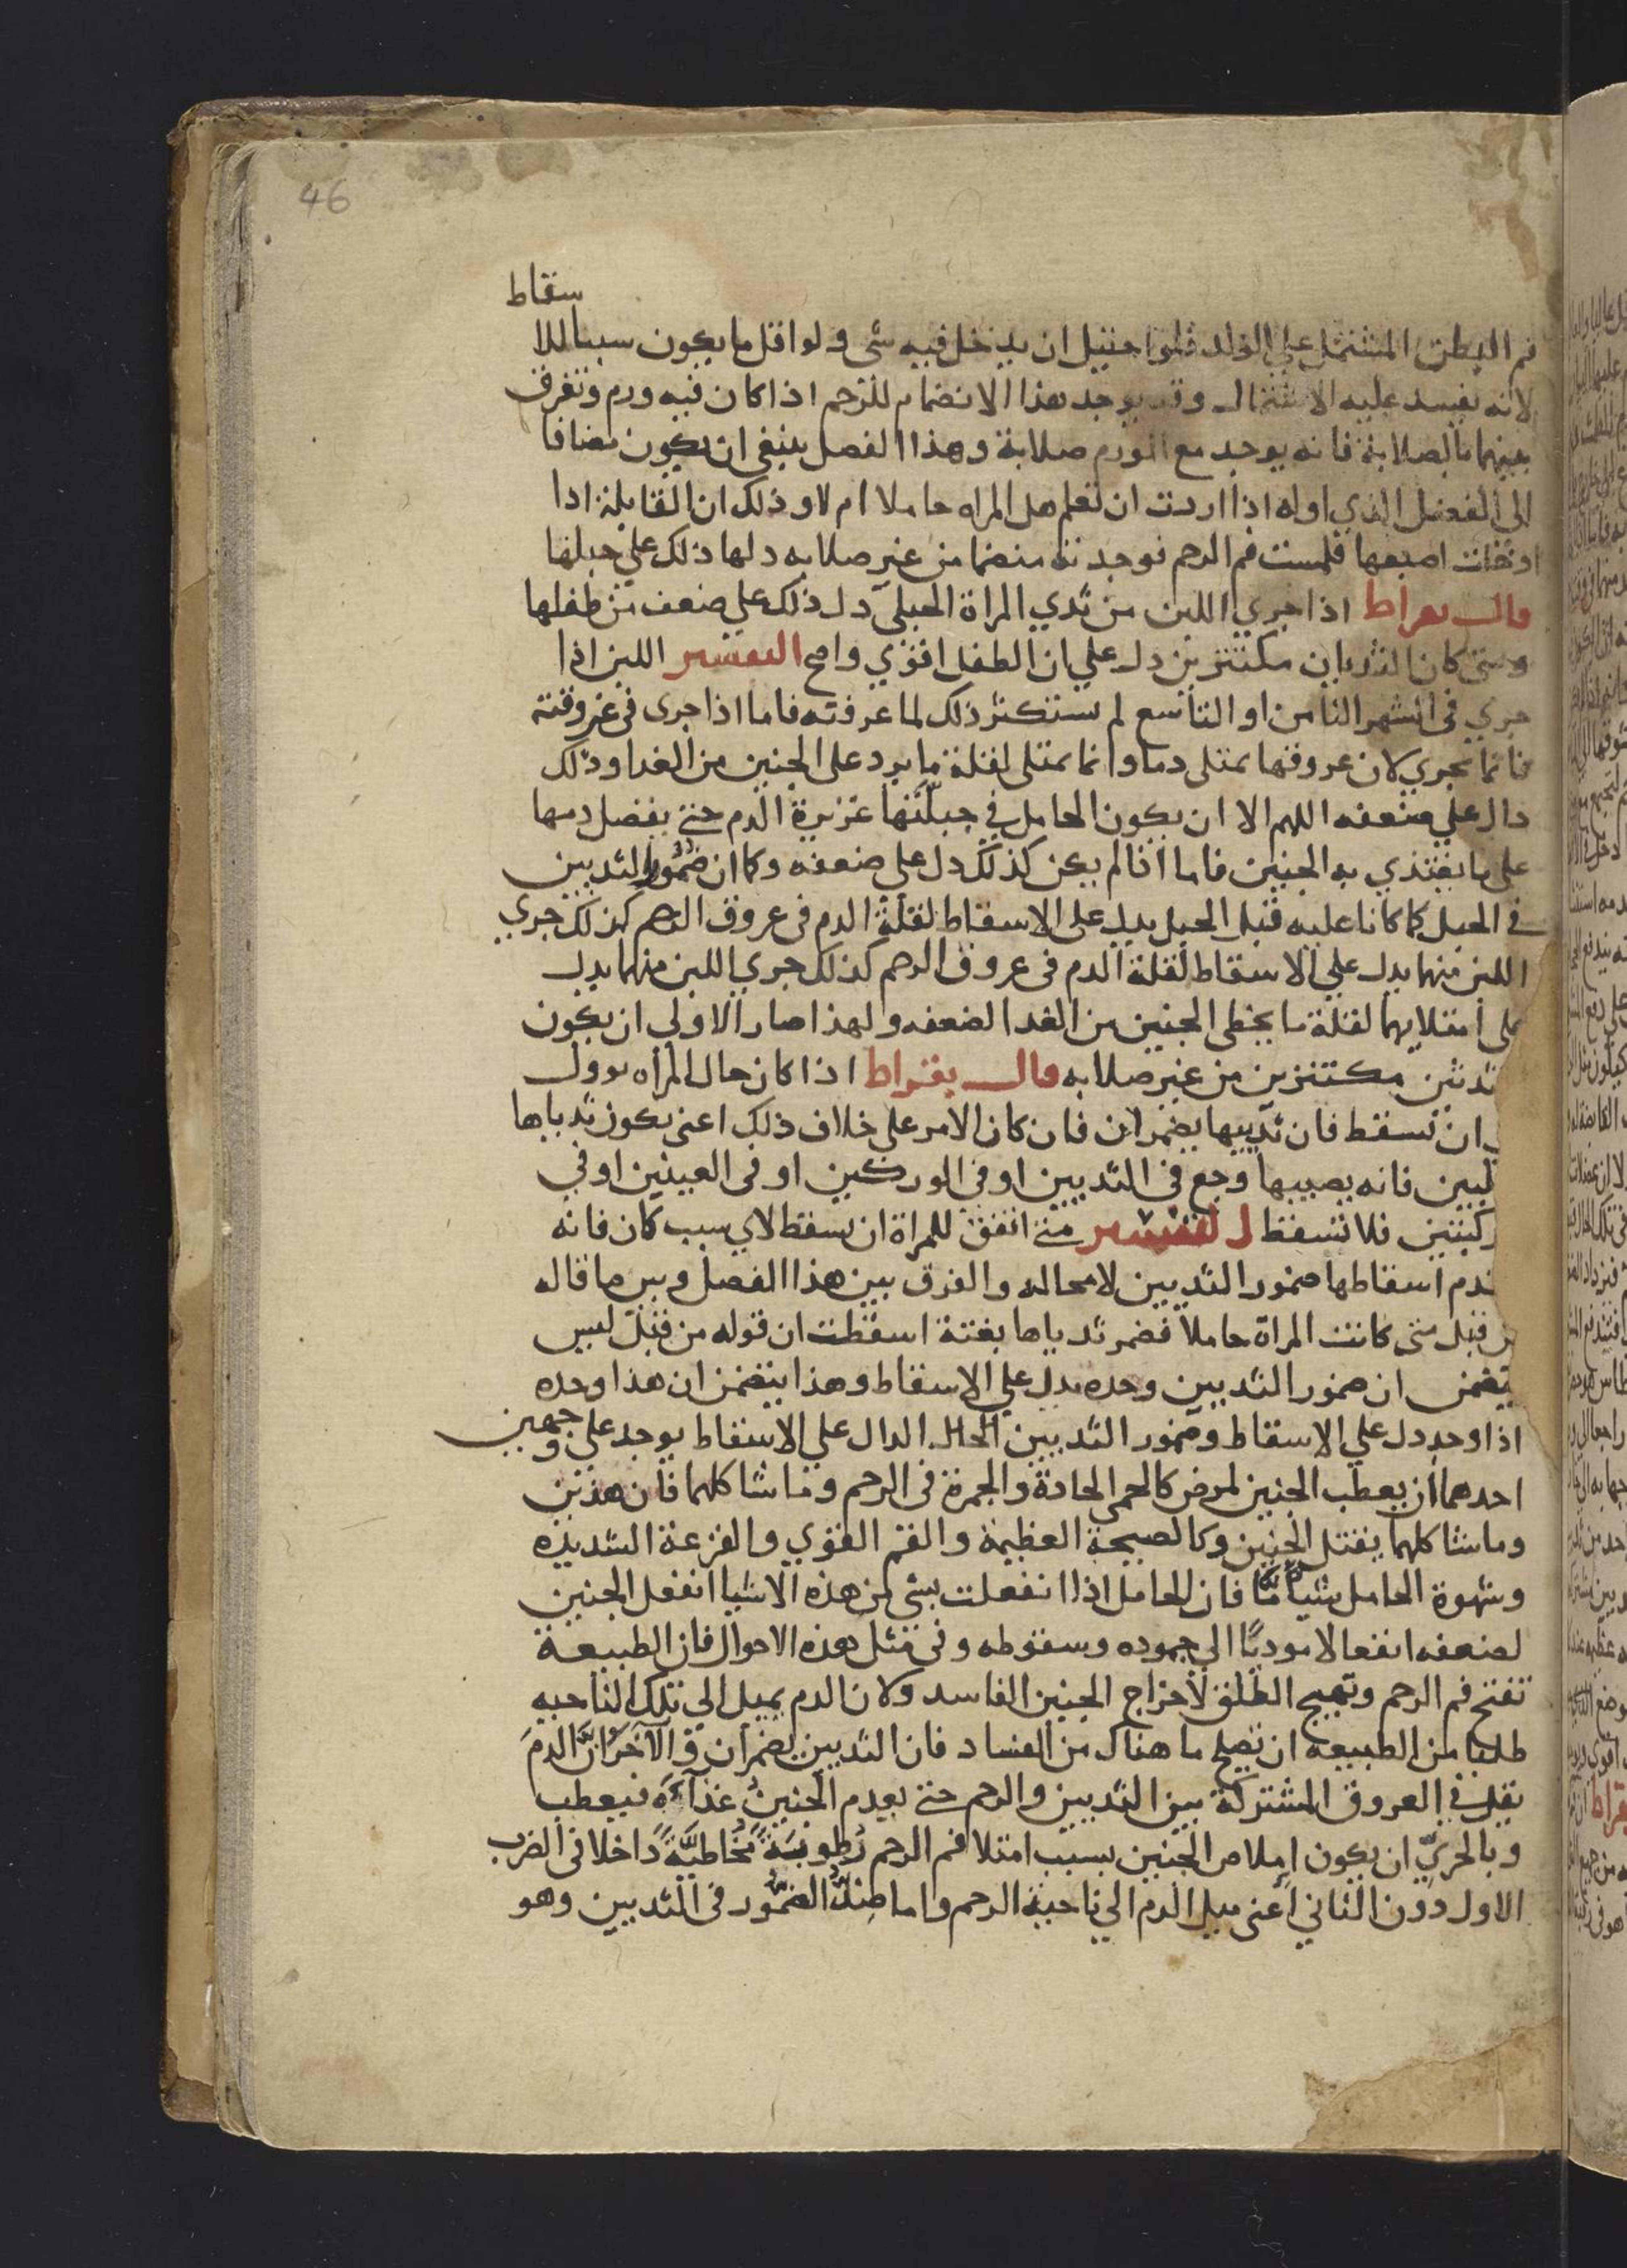 46
سقاط
فم البطن المشتمل علي الولد فلو احتيل ان يدخل فيه شى ولو اقل ما يكون سببا للا
لانه يفسد عليه الاشتمال وقد يوجد هذا الانضمام للرحم اذا كان فيه ورم وتفرق
بينهما بالصلابة فانه يوجد مع الورم صلابة وهذا الفصل ينبغى ان يكون مضافا
الى الفصل الذي اوله اذا اردت ان تعلم هل المراه حاملا ام لا وذلك ان القابلة اذا
ادخلت اصبعها فلمست فم الرحم فوجدته منضما من غير صلابه دلها ذلك علي حبلها
قال بقراط اذا جري اللبن من ثدي المراة الحبلى دل ذلك علي ضعف من طفلها
ومتى كان الثديان مكتنزين دل علي ان الطفل اقوي واصح التفسير اللبن اذا
جري فى الشهر الثامن او التاسع لم يستنكر ذلك لما عرفته فاما اذا جرى فى غير وقته
فانما يجري لان عروقها تمتلى دما وانما تمتلى لقلة ما يرد على الجنين من الغدا وذلك
دال علي ضعفه اللهم الا ان يكون الحامل في جبلتها غزيرة الدم حتى يفضل دمها
على ما يغتذي به الجنين فاما اذا لم يكن كذلك دل علي ضعفه وكما ان ضمور الثديين
في الحبل كما كانا عليه قبل الحبل يدل على الاسقاط لقلة الدم فى عروق الرحم كذلك جري
اللبن منهما يدل علي الاسقاط لقلة الدم فى عروق الرحم كذلك جري اللبن منهما يدل
على امتلايهما لقلة ما يخطى الجنين من الغدا لضعفه ولهذا صار الاولى ان يكون
ثديين مكتنزين من غير صلابه قال بقراط اذا كان حال المراه يوول
ان تسقط فان ثدييها يضمران فان كان الامر على خلاف ذلك اعنى يكون ثدياها
لبين فانه يصيبها وجع فى الثديين او فى الوركين او فى العينين او في
ركبتين فلا تسقط التفسير متى اتفق للمراة ان تسقط لاي سبب كان فانه
تدم اسقاطها ضمور الثديين لا محاله والفرق بين هذا الفصل وبين ما قاله
من قبل متى كانت المراة حاملا فضمر ثدياها بغتة اسقطت ان قوله من قبل ليس
يتضمن ان ضمور الثديين وحده يدل علي الاسقاط وهذا يتضمن ان هذا وحده
اذا وجد دل علي الاسقاط وضمور الثديين الحال الدال علي الاسقاط يوجد على وجهين
احدهما ان يعطب الجنين لمرض كالحمى الحادة والجمرة فى الرحم وما شاكلهما فان هذين
وما شاكلهما يقتل الجنين وكالصيحة العظيمة والغم القوي والفزعة الشديده
وشهوة الحامل شيا ما فان الحامل اذا انفعلت بشى من هذه الاشيا انفعل الجنين
لضعفه انفعالا موديا الي جموده وسقوطه وفى مثل هذه الاحوال فان الطبيعة
تفتح فم الرحم وتهيج الطلق لاخراج الجنين الفاسد ولان الدم يميل الي تلك الناحيه
طلبا من الطبيعه ان تصلح ما هناك من الفساد فان الثديين يضمران والاخر ان الدم
يقل في العروق المشتركة بين الثديين والرحم حتى يعدم الجنين غذاءه فيعطب
وبالحري ان يكون املاص الجنين بسبب امتلا فم الرحم رطوبة مخاطية داخلا فى الضرب
الاول دون الثاني اعنى ميل الدم الي ناحية الرحم واما مثل الضمور فى الثديين وهو